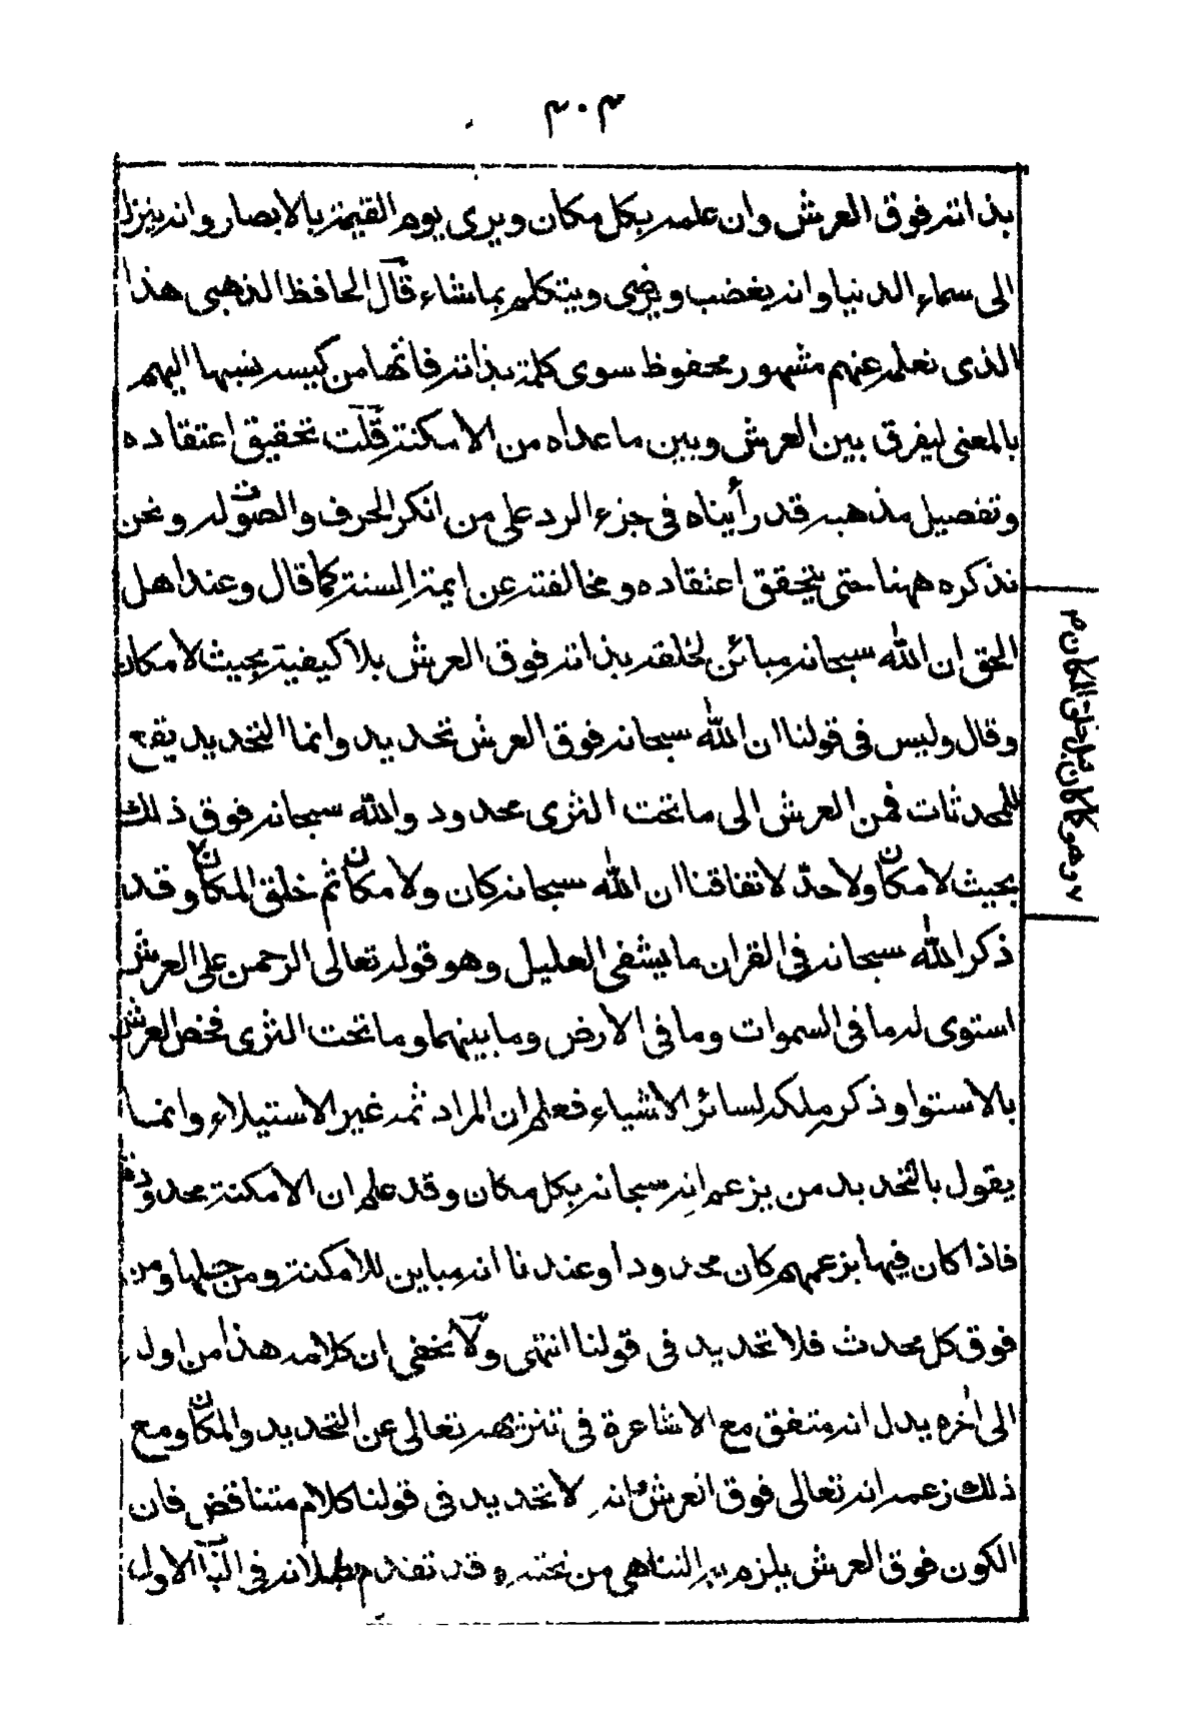 ٣٠٣
بذاته فوق العرش وان علمه بكل مكان ويرى يوم القيمة بالابصار وانه ينزل
الى سماء الدنيا وانه يغضب ويرضى ويتكلم بماشاء قال الحافظ الذهبى هذا
الذى نعلمه عنهم مشهور محفوظ سوى كلمة بذاته فانها من كيسه نسبها اليهم
بالمعنى ليفرق بين العرش وبين ماعداه من الامكنة قلت تحقيق اعتقاده
وتفصيل مذهبه قد رأيناه فى جزء الرد على من انكر الحرف والصوت له ونحن
نذكره ههنا حتى يتحقق اعتقاده ومخالفته عن ايمة السنة كما قال وعند اهل
الحق ان الله سبحانه مبائن لخلقه بذاته فوق العرش بلا كيفية بحيث لامكان
وقال وليس فى قولنا ان الله سبحانه فوق العرش تحديد وانما التحديد يقع
للمحدثات فمن العرش الى ماتحت الثرى محدود والله سبحانه فوق ذلك
بحيث لامكان ولاحد لاتفاقنا ان الله سبحانه كان ولامكان ثم خلق المكان وقد
ذكر الله سبحانه فى القران مايشفى العليل وهو قوله تعالى الرحمن على العرش
استوى له ما فى السموات وما فى الارض وما بينهما وماتحت الثرى فخص العرش
بالاستوا وذكر ملكه لسائر الاشياء فعلم ان المراد ثمه غير الاستيلاء وانما
يقول بالتحديد من يزعم انه سبحانه بكل مكان وقد علم ان الامكنة محدودة
فاذا كان فيها بزعمهم كان محدودا وعندنا انه مباين للامكنة ومن حلها ومن
فوق كل محدث فلا تحديد فى قولنا انتهى ولا يخفى ان كلامه هذا من اوله
الى اخره يدل انه متفق مع الاشاعرة فى تنزيهه تعالى عن التحديد والمكان ومع
ذلك زعمه انه تعالى فوق العرش انه لا تحديد فى قولنا كلام متناقض فان
الكون فوق العرش يلزمه التناهى من تحته وقد تقدم بطلانه فى الباب الاول
٧ وهو كما كان قبل خلق المكان م